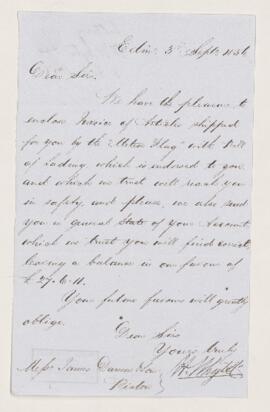 Edinr 3d Septr 1856
Dear Sir.
We have the pleasure to
enclose Invoice of Articles shipped
for you by the "Union Flag" with Bill
of Lading which is indorsed to you
and which we trust will reach you
in safety and please, we also send
you a general State of your Account
which we trust you will find correct
leaving a balance in our favour of
£ 27. 6. 11.
Your future favours will greatly
oblige.
Dear Sirs
Yours truly
Messrs James Dawson
Pictou